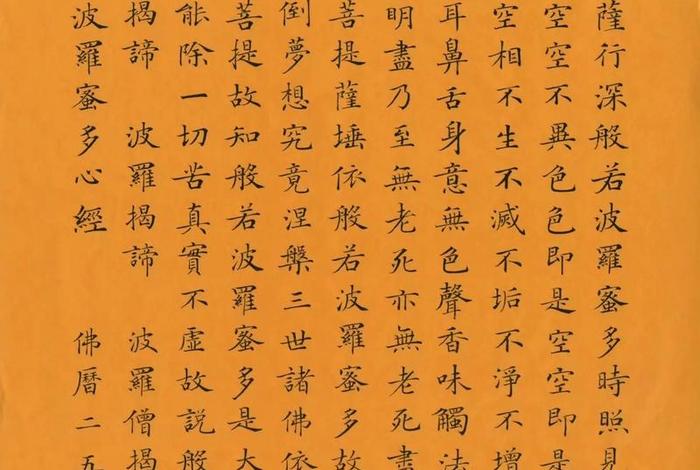 薩行深般若波羅蜜多時照見
空空不異色色即是空空即是
空相不生不滅不垢不淨不增
耳鼻舌身意無色聲香味觸法
明盡乃至無老死亦無老死盡
菩提薩埵依般若波羅蜜多故
倒夢想究竟涅槃三世諸佛依
菩提故知般若波羅蜜多是大
能除一切苦真實不虛故說般
揭諦　波羅揭諦　波羅僧揭
波羅蜜多心經　佛曆二五